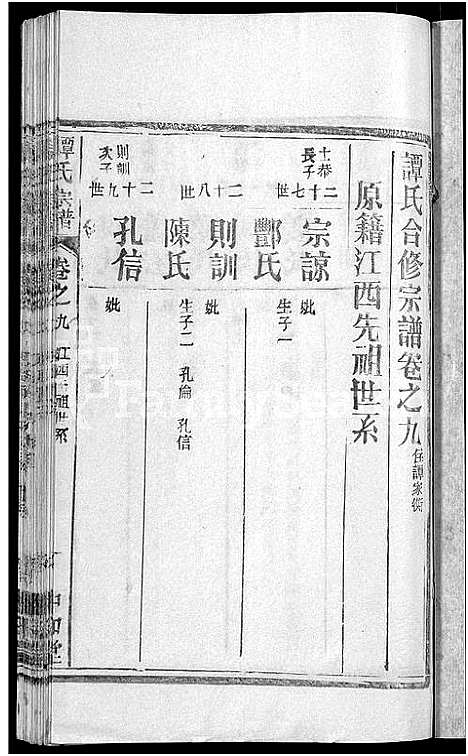 譚氏合修宗譜卷之九 住譚家衖
原籍江西先祖世系
士恭長子
二十七世
宗諒
妣
酆氏
生子一
二十八世
則訓
妣
陳氏
生子二 孔倫 孔信
則訓次子
二十九世
孔信
妣
譚氏宗譜 卷之九 江西先祖世系